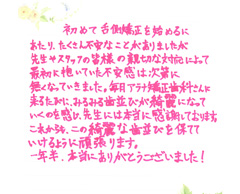 初めて舌側矯正を始めるに
あたり、たくさん不安なことがありましたが
先生やスタッフの皆様の親切な対応によって
最初に抱いていた不安感は次第に
無くなっていきました。毎月アラナ矯正歯科さんに
来るたびに、みるみる歯並びが綺麗になって
いくのを感じ、先生には本当に感謝しております。
これからも、この綺麗な歯並びを保てて
いけるように頑張ります。
一年半、本当にありがとうございました！